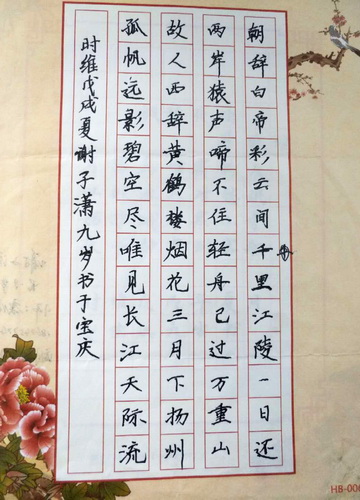 朝辞白帝彩云间千里江陵一日还
两岸猿声啼不住轻舟已过万重山
故人西辞黄鹤楼烟花三月下扬州
孤帆远影碧空尽唯见长江天际流
时维戊戌夏谢子潇九岁书于宝庆